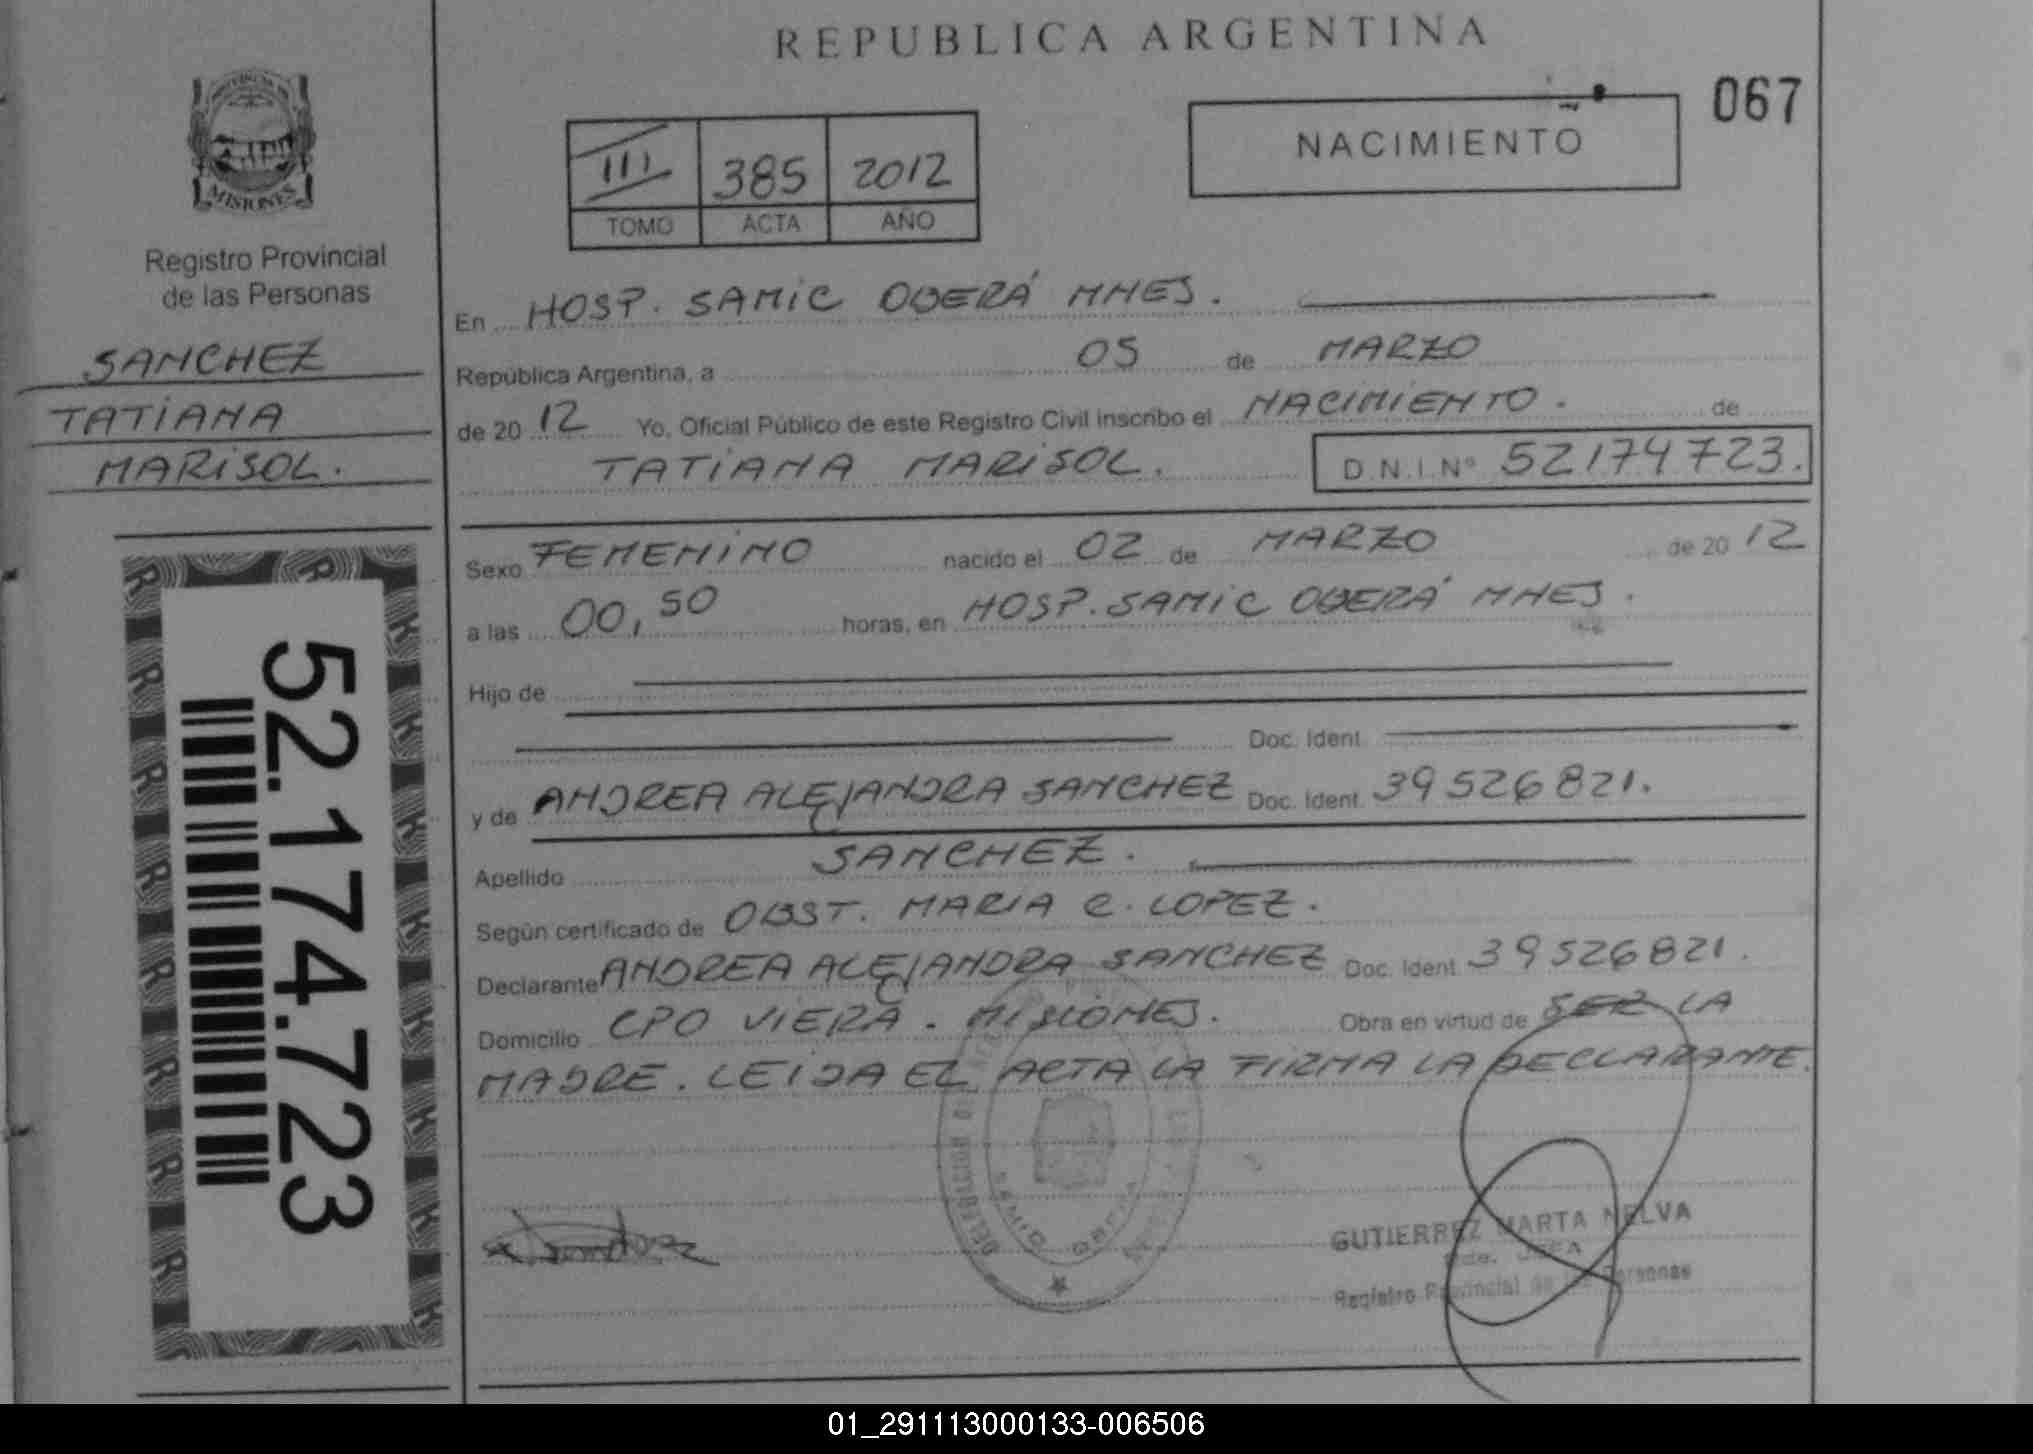 REPUBLICA ARGENTINA
067
NACIMIENTO
III 385 2012
TOMO ACTA AÑO
MISIONES
Registro Provincial
de las Personas
SANCHEZ
TATIANA
MARISOL.
52.174.723
En HOSP. SAMIC OBERÁ MNES.
República Argentina, a 05 de MARZO
de 20 12 Yo, Oficial Público de este Registro Civil inscribo el NACIMIENTO. de
TATIANA MARISOL. D.N.I.Nº 52174723.
Sexo FEMENINO nacido el 02 de MARZO de 20 12
a las 00,50 horas, en HOSP. SAMIC OBERÁ MNES.
Hijo de
Doc. Ident.
y de ANDREA ALEJANDRA SANCHEZ Doc. Ident. 39526821.
Apellido SANCHEZ.
Según certificado de OBST. MARIA C. LOPEZ.
Declarante ANDREA ALEJANDRA SANCHEZ Doc. Ident. 39526821.
Domicilio CPO VIERA. MISIONES. Obra en virtud de SER LA
MADRE. LEIDA EL ACTA LA FIRMA LA DECLARANTE.
DELEGACION
SAMIC OBERA
GUTIERREZ MARTA NELVA
JEFA
Registro Provincial de las Personas
01_291113000133-006506